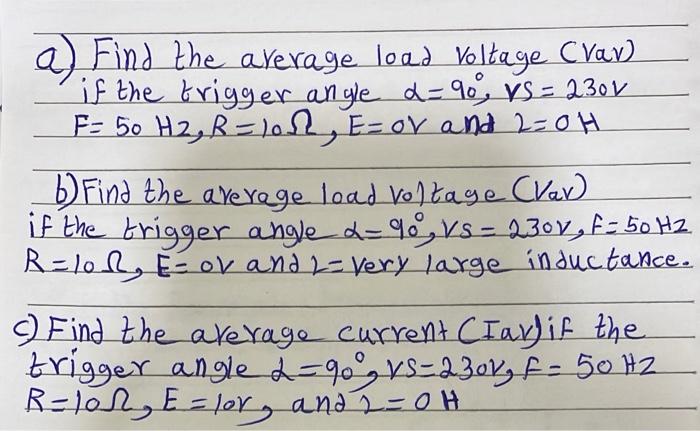 a) Find the average load voltage (Vav)
if the trigger angle α=90°, VS = 230V
F= 50 HZ, R=10Ω, E=0V and L=0H
b) Find the average load voltage (Vav)
if the trigger angle α=90°, VS = 230V, F=50HZ
R=10Ω, E=0V and L=very large inductance.
c) Find the average current (Iav) if the
trigger angle α=90°, VS=230V, F=50HZ
R=10Ω, E=10V, and L=0H